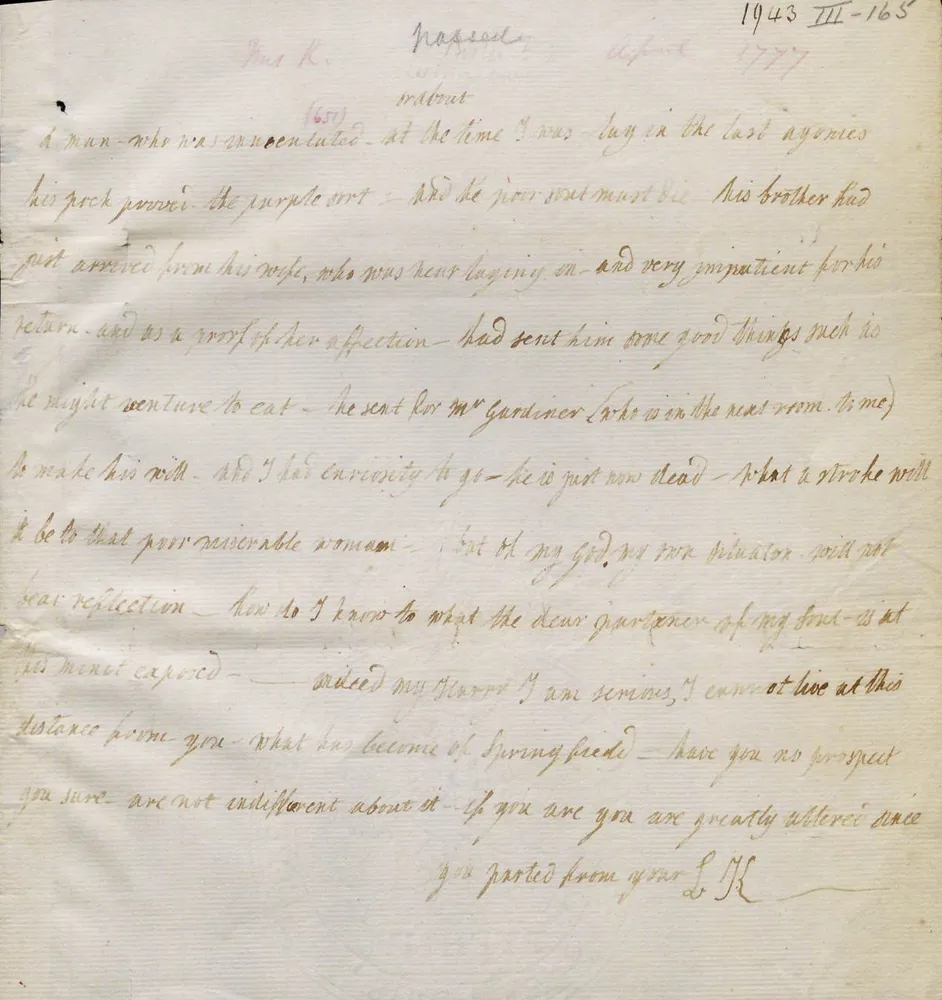 1943 III-165
passed
Mrs K. April 1777
(651)
or about
A man - who was innoculated - at the time I was - lay in the last agonies
his pock proved the purple sort - and he poor soul must die his brother had
just arrived from his wife, who was near laying in - and very impatient for his
return - and as a proof of her affection - had sent him some good things such as
he might venture to eat - he sent for Mr Gardiner (who is in the next room to me)
to make his will - and I had curiosity to go - he is just now dead - what a stroke will
it be to that poor miserable woman - but oh my God, my own situaton will not
bear reflection - how do I know to what the dear partener of my soul - is at
this minit exposed - indeed my Harry I am serious, I cannot live at this
distance from you - what has become of Springfield - have you no prospect
you sure - are not indifferent about it - if you are you are greatly altered since
you parted from your L K